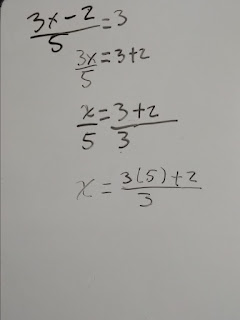 3x-2/5=3
3x/5=3+2
x/5=3+2/3
x=3(5)+2/3